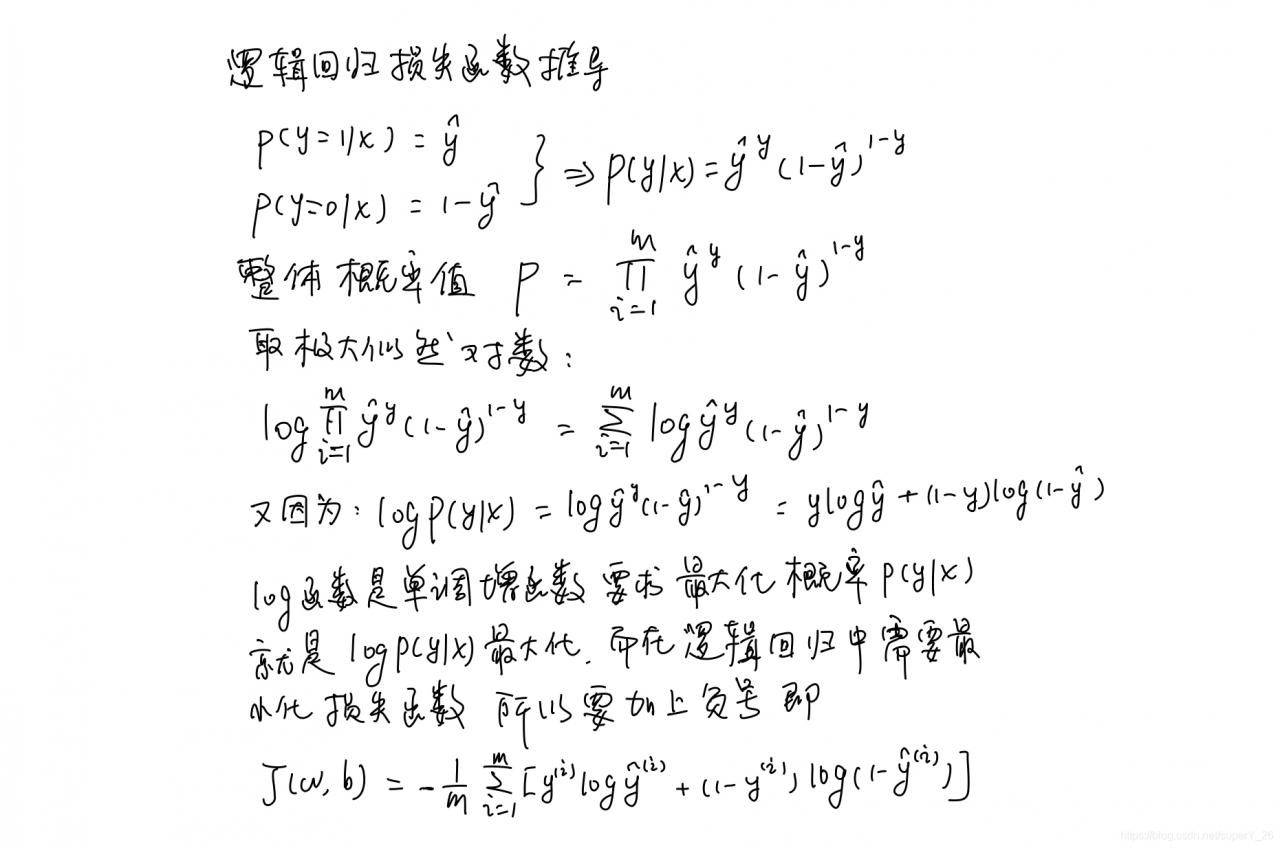 逻辑回归损失函数推导
p(y=1/x) = ŷ
p(y=0/x) = 1-ŷ } ⇒ p(y/x) = ŷ^y (1-ŷ)^{1-y}
整体概率值 P = ∏_{i=1}^{m} ŷ^y (1-ŷ)^{1-y}
取极大似然对数:
log ∏_{i=1}^{m} ŷ^y (1-ŷ)^{1-y} = ∑_{i=1}^{m} log ŷ^y (1-ŷ)^{1-y}
又因为: log p(y|x) = log ŷ^y (1-ŷ)^{1-y} = y log ŷ + (1-y) log (1-ŷ)
log函数是单调增函数 要求 最大化 概率 p(y|x)
就是 log p(y|x) 最大化. 而在逻辑回归中需要最
小化 损失函数 所以要加上负号 即
J(w, b) = -\frac{1}{m} ∑_{i=1}^{m} [y^{(i)} log ŷ^{(i)} + (1-y^{(i)}) log (1-ŷ^{(i)})]
https://blog.csdn.net/superY_26